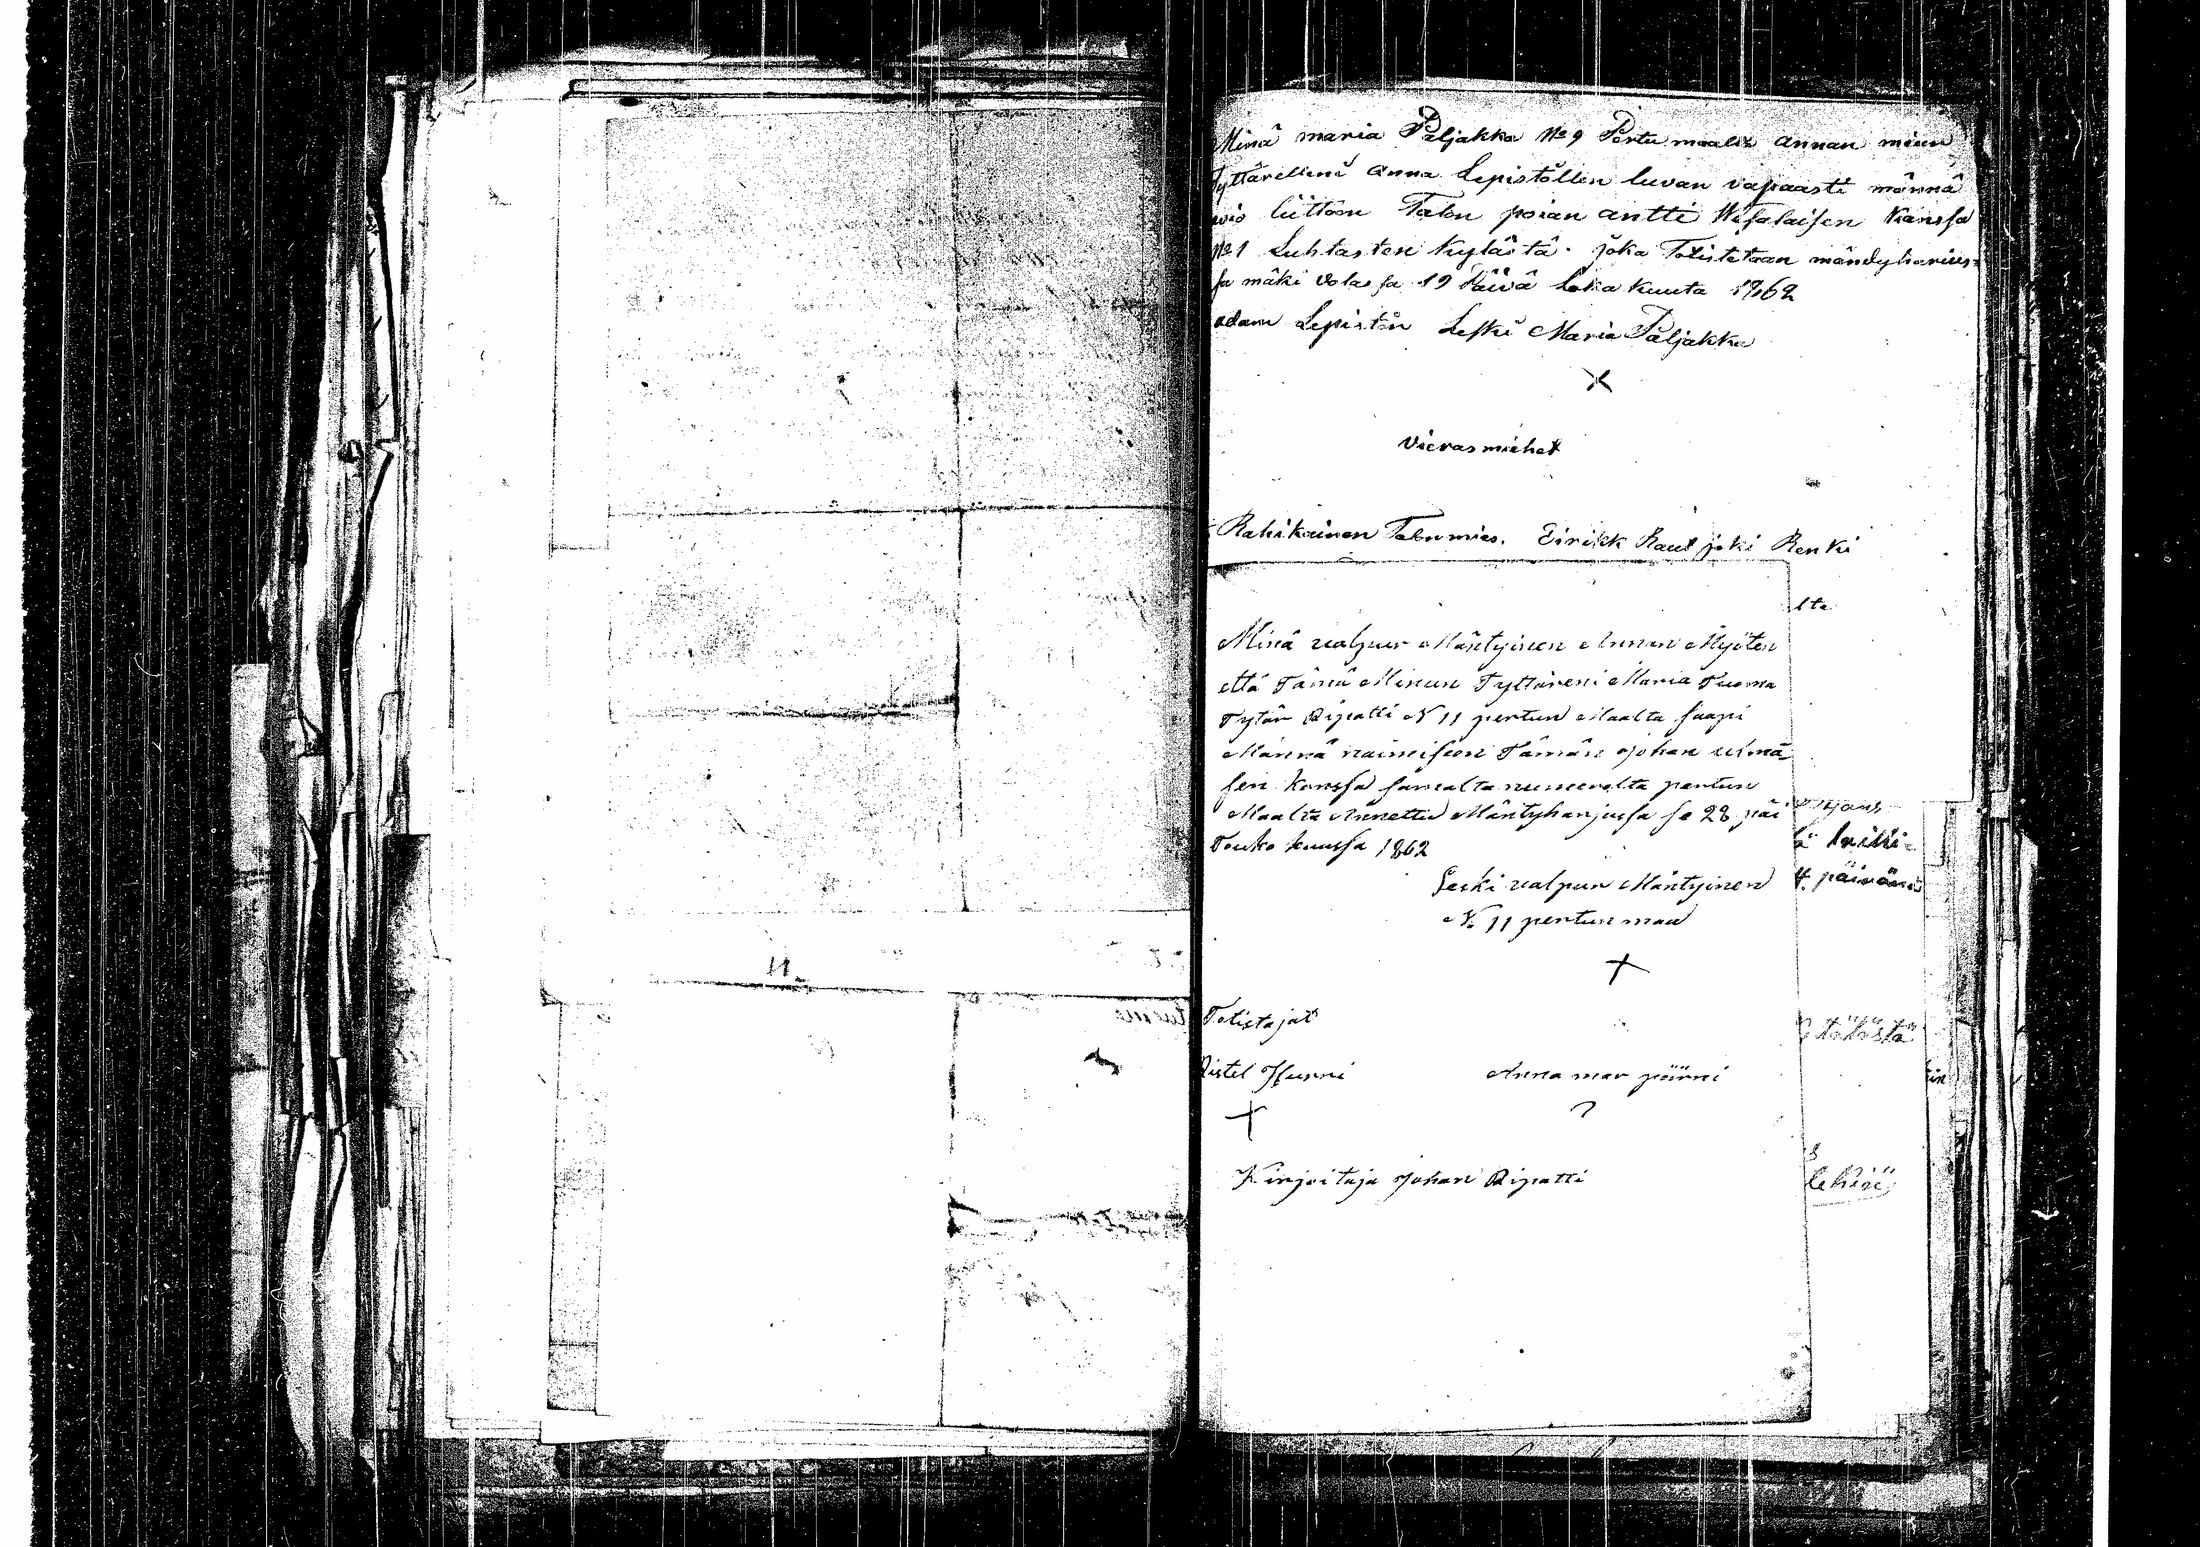 Minä maria Paljakka No 9 Pertu maalta annan minun
Tyttärelleni anna Lepistöllen luvan vapaasti männä
avio liittoon Talon poian antti Wesalaisen kanssa
No 1 Luhtasten kylästä. joka Totistetaan mändyharius-
sa mäki Volassa 19 Päivä loka kuuta 1862
adam Lepistön Leski Maria Paljakka
X
Vieras miehet
Rahikainen Talon mies. Eirikk Raut joki Renki
lta
Minä valpur Mäntyinen Annan Myöten
että Tämä Minun Tyttäreni Maria Tuoma
Tytär Ripatti N 11 pertun Maalta saapi
Männä naimiseen Tämän Johan
sen kanssa samalta numerolta pertun
Maalta Annettu Mäntyharjussa se 28 päi
Touko kuussa 1862
Leski valpur Mäntyinen
N. 11 pertun maa
+
Totistajat
Ristel Hurri Anna mar pöirni
+
Kirjoitaja Johan Ripatti
päivänä